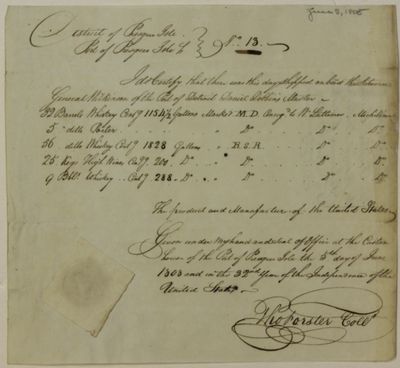 June 3, 1808
District of Presque Isle
Port of Presque Isle
No. 13.
I do Certify that there was this day shipped on board the Schooner
General Wilkinson of the Port of Detroit Daniel Dobbins Master
32 Barrels Whiskey Cont'g 1154½ Gallons Marked M.D. Consg'd to W. Michilim
5 ditto Porter Do Do Do
56 ditto Whiskey Cont'g 1828 Gallons B.S.R. Do Do
25 Kegs High Wine Cont'g 200 Do Do Do Do
9 Bbls Whiskey Cont'g 288 Do Do Do Do
The product and Manufacture of the United States
Given under my hand and seal of Office at the Custom
house of the Port of Presque Isle the 3rd day of June
1808 and in the 32nd year of the Independence of the
United States
Tho Forster Coll